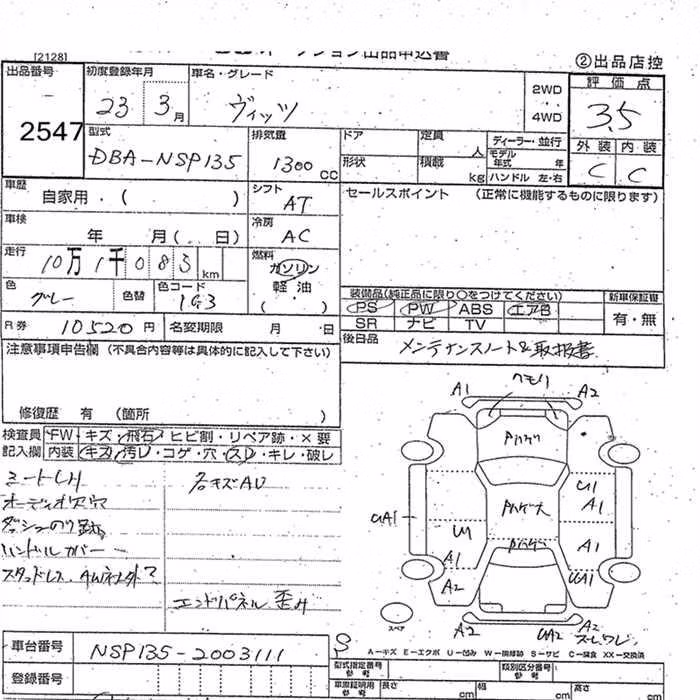 [2128]
オークション出品申込書
②出品店控
出品番号 初度登録年月 車名・グレード 2WD 4WD 評価点
2547 23 3月 ヴィッツ 3.5
型式 排気量 ドア 定員 人 ディーラー・並行 外装 内装
DBA-NSP135 1300cc 形状 積載 kg モデル年式 年 ハンドル 左・右 C C
車歴 自家用・( ) シフト AT セールスポイント (正常に機能するものに限ります)
車検 年 月( . 日) 冷房 AC
走行 10万1千083km 燃料 ガソリン 軽油 ( )
色 グレー 色替 色コード 1G3
装備品(純正品に限り○をつけてください) 新車保証書
PS PW ABS エアB 有・無
SR ナビ TV
R券 10520円 名変期限 月 日
後日品 メンテナンスノート&取扱書
注意事項申告欄 (不具合内容等は具体的に記入して下さい)
修復歴 有 (箇所 )
検査員 FW キズ・飛石・ヒビ割・リペア跡・×要
記入欄 内装 キズ・汚レ・コゲ・穴・スレ・キレ・破レ
シートLH 各キズAU
オーディオ穴穴
ダッシュのり跡
ハンドルカバー
スタッドレス
エンドパネル歪み
A1 クモリ A2
Pハゲ
U1
A1
UA1 U1 Pハゲ大
A1 Pハゲ A1
A2 UA1
スペア A2 UA2 A2
スレワレ
A-キズ E-エクボ U-凹み W-補修跡 S-サビ C-腐食 XX-交換済
車台番号 NSP135-2003111
登録番号
型式指定番号 類別区分番号
参考
車庫証明用 長さ cm 幅 cm 高さ cm